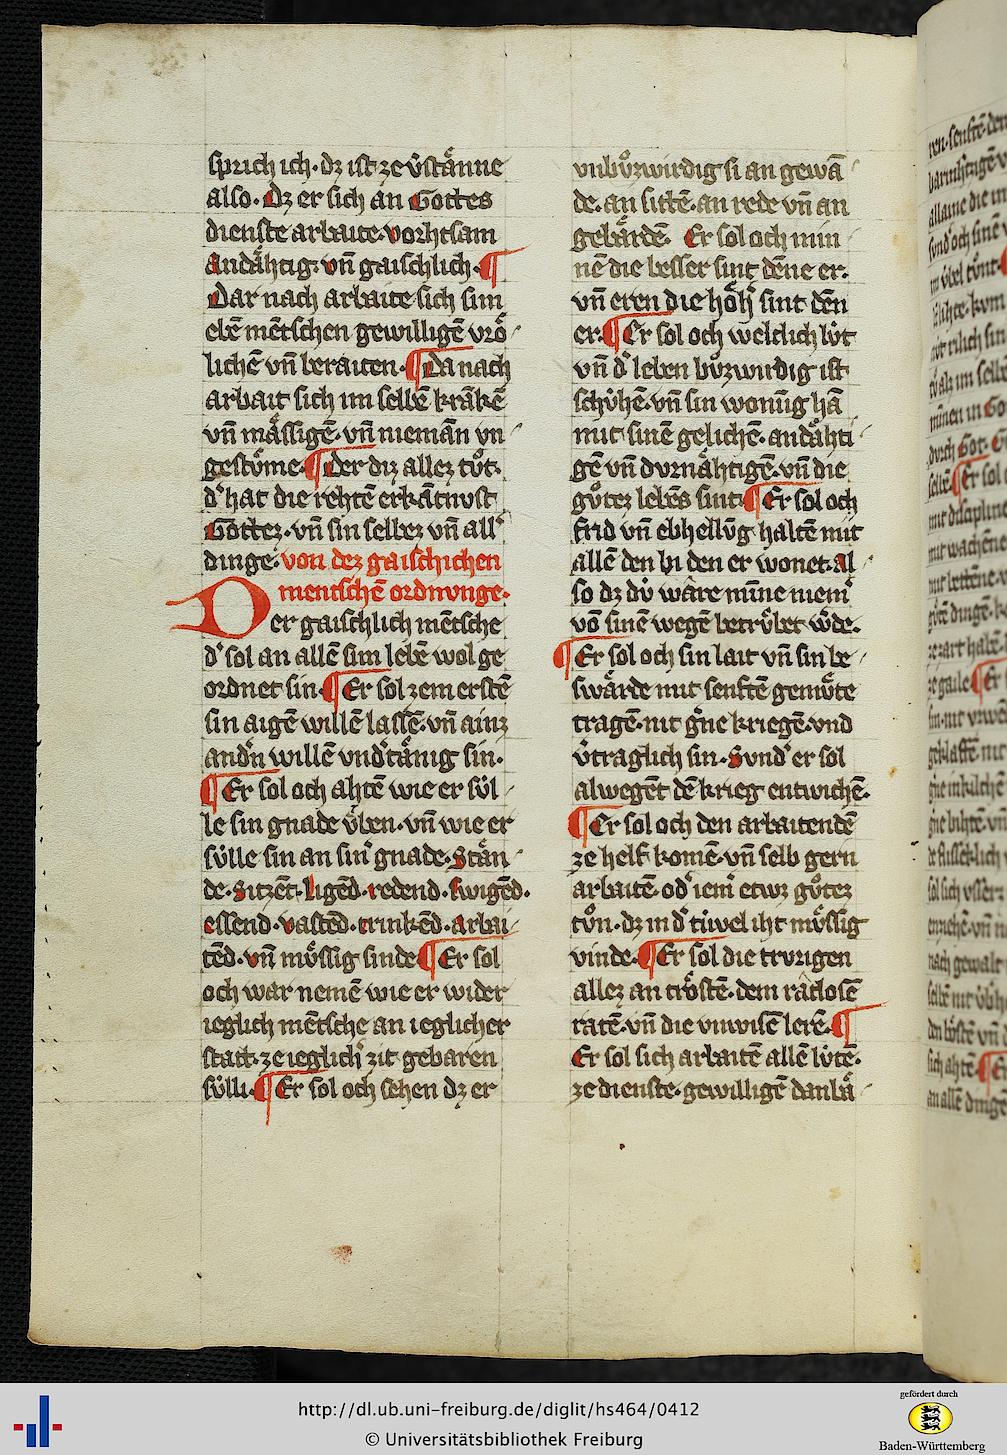 sprich ich· dz ist ze v̾stãnne
also· Dz er sich an Gottes
dienste arbaite· vorhtsam
Andähtig· vñ gaischlich· ¶
Dar nach arbaite sich sim
elẽ mẽtschen gewilligẽ vrö
lichẽ vñ beraiten· ¶ Da nach
arbait sich im selbẽ krãkẽ
vñ mässigẽ· vñ niemãn vn
gestüme· ¶ Der diz allez tůt·
d̾ hat die rehtẽ erkãtnust
Gottez· vñ sin selbez vñ all̾
dinge· von dez gaischichen
mentschẽ ordnvnge·
Der gaischlich mẽtsche
d̾ sol an allẽ sim lebẽ wol ge
ordnet sin· ¶ Er sol zem erstẽ
sin aigẽ willẽ lassẽ· vñ ainz
and̾n willẽ vnd̾tänig sin·
¶ Er sol och ahtẽ wie er sül
le sin gnade üben· vñ wie er
sülle sin an sin̾ gnade· Stãn
de· Sitzẽt· Ligẽd· redend· swigẽd·
essend· vastẽd· trinkẽd· Arbai
tẽd· vñ müssig sinde ¶ Er sol
och war nemẽ wie er wider
ieglich mẽtsche an ieglicher
statt· ze ieglich̾ zit gebaren
sülli· ¶ Er sol och sehen dz er
vnbůzwirdig si an gewã
de· an sittẽ· an rede vñ an
gebärdẽ· Er sol och min
nẽ die besser sint dẽne er·
vñ eren die höh̾ sint dẽn
er· ¶ Er sol och weltlich lv̍t
vñ d̾ leben bůzwirdig ist
schühẽ· vñ sin wonũg hã
mit sinẽ gelichẽ· andähti
gẽ vñ dvrnähtigẽ· vñ die
gůtez lebẽs sint· ¶ Er sol och
frid vñ ebhellũg haltẽ mit
allẽ den bi den er wonet· Al
so dz dv̍ wäre mĩne niem̾
võ sinẽ wegẽ betrübet w̾de·
¶ Er sol och sin lait vñ sin be
swärde mit senftẽ gemůte
tragẽ· nit g̾ne kriegẽ· vnd
v̾traglich sin· Svnd̾ er sol
alwegẽt dẽ krieg entwichẽ·
¶ Er sol och den arbaitendẽ
ze helf komẽ· vñ selb gern
arbaitẽ· od̾ iem̾ etwz gůtez
tůn· dz in d̾ tüvel iht müssig
vinde· ¶ Er sol die trvrigen
allez an tröstẽ· dem râtlosẽ
ratẽ· vñ die vnwisẽ lerẽ· ¶
Er sol sich arbaitẽ allẽ lv̍tẽ·
ze dienste· gewilligẽ danbä
http://dl.ub.uni-freiburg.de/diglit/hs464/0412
© Universitätsbibliothek Freiburg
gefördert durch
Baden-Württemberg